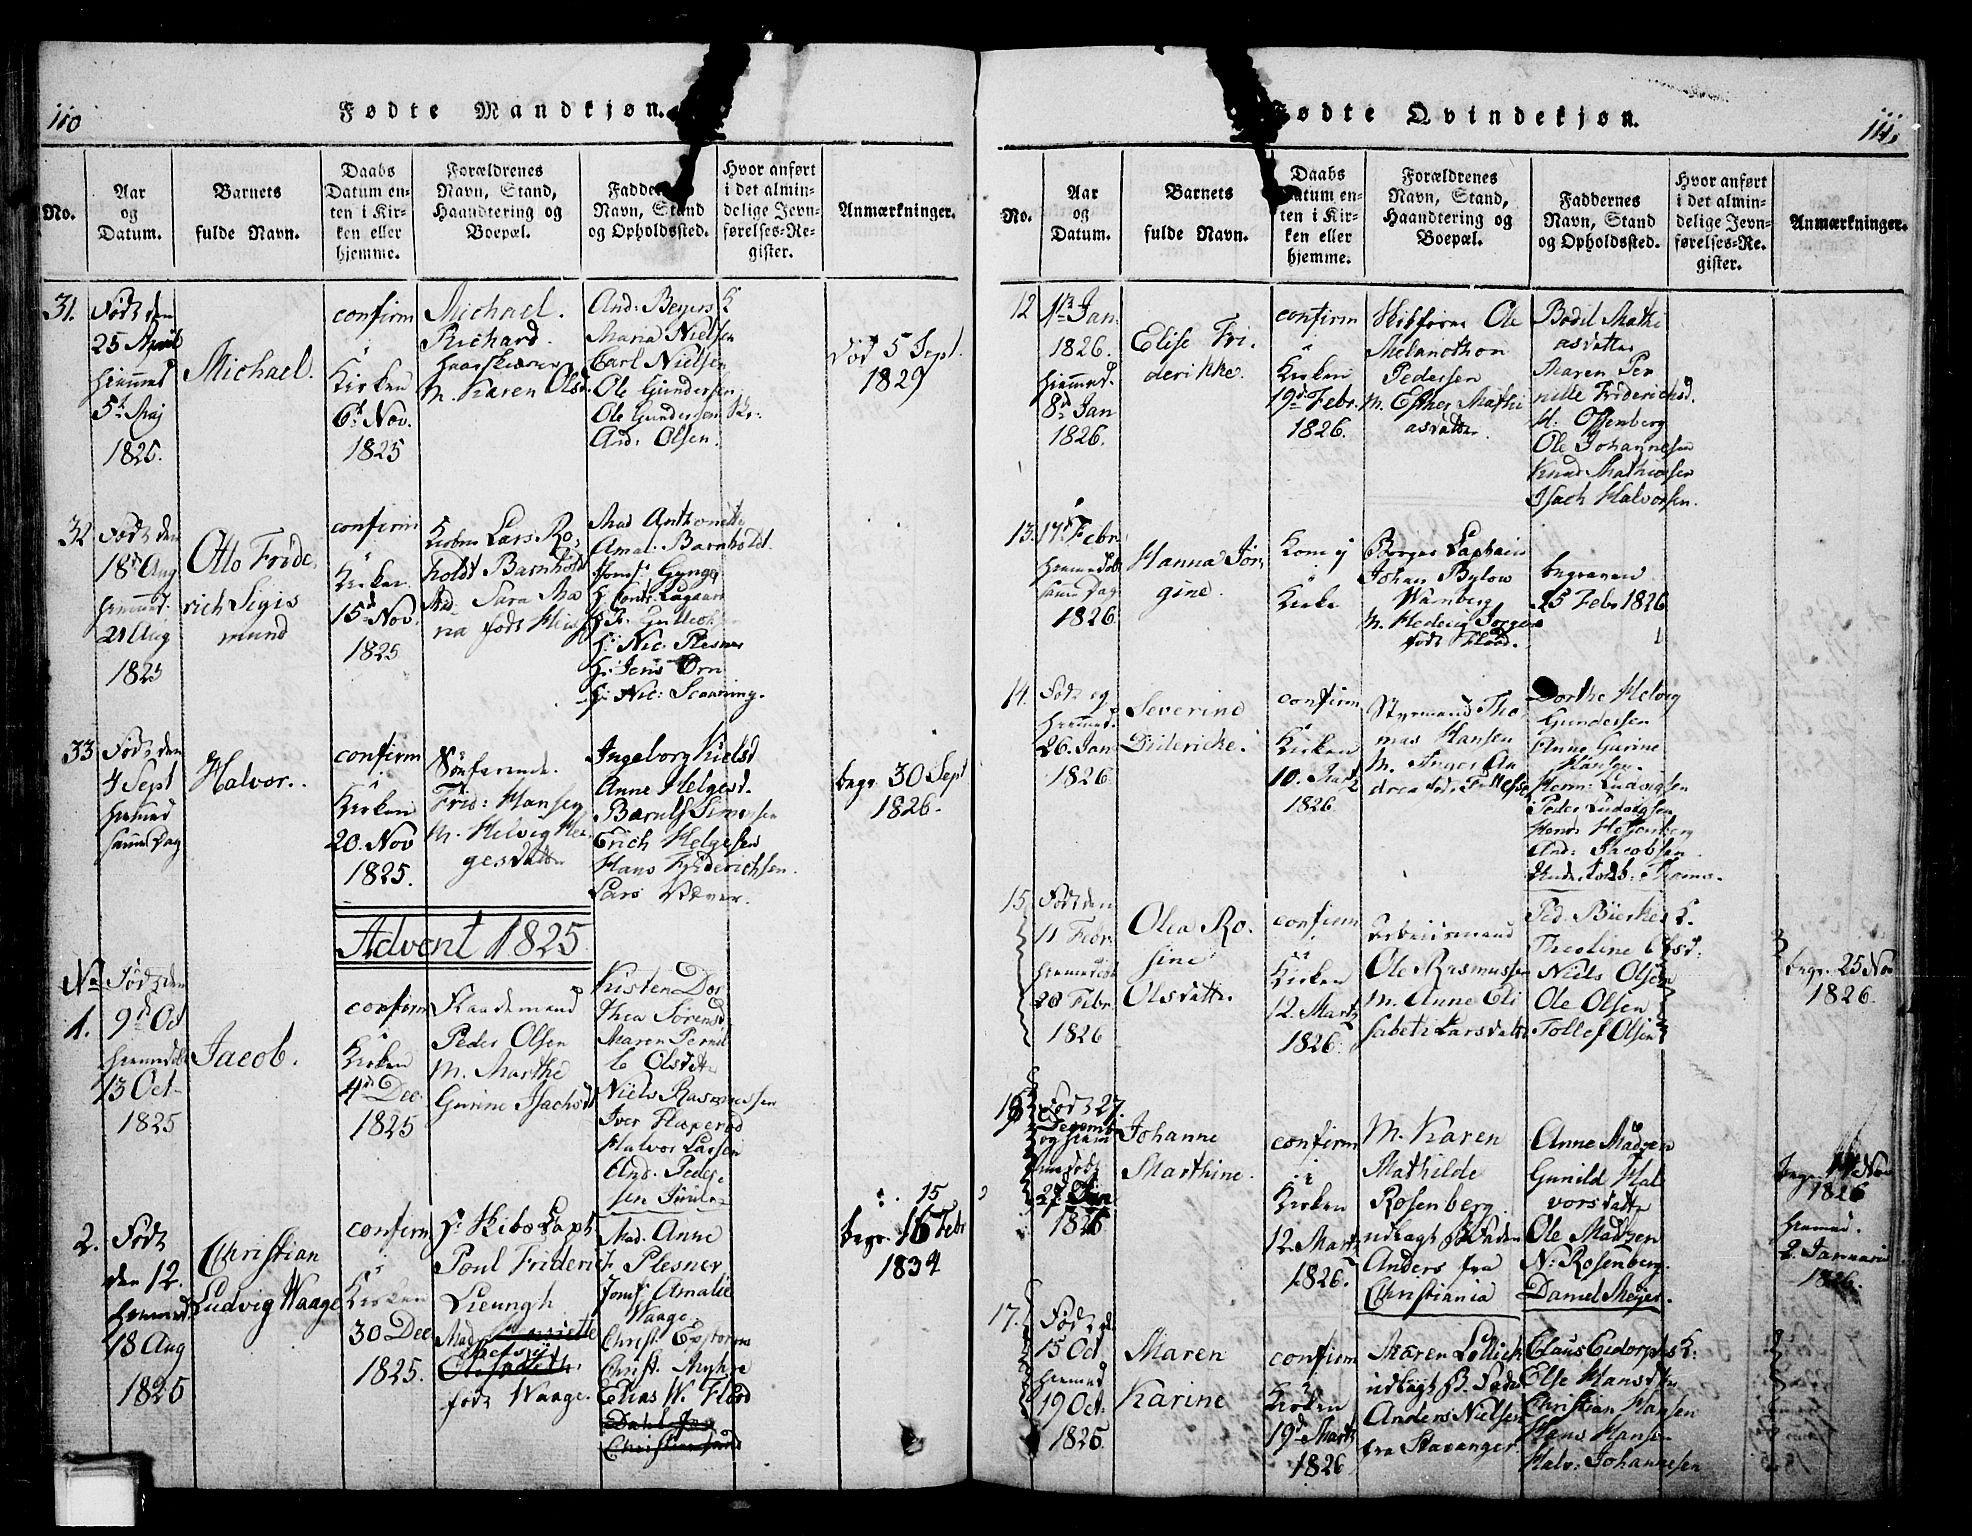 110
Fødte Mandkjøn.
No.
Aar
og
Datum.
Barnets
fulde Navn.
Daabs
Datum en-
ten i Kir-
ken eller
hjemme.
Forældrenes
Navn, Stand,
Haandtering og
Boepæl.
Navn, Stand
og Opholdssted.
Hvor anført
i det almin-
delige Jevn-
førelses-Re-
gister.
Anmærkninger.
31.
Født den
25 April
hiemmed
5t Maj
1825.
Michael.
confirm
i
Kirken
6t Nov.
1825
Michael
Richard
M. Karen Olsd
And: Beyers K
Maria Nielsen
Carl Nielsen
Ole Gundersen
Ole Gundersen
And: Olsen.
Død 5 Sept.
1829
32
Født den
18d Aug
hiemmed.
21 Aug
1825
Otto Fride-
rich Sigis
mund
confirm
i
Kirken
15d Nov.
1825
Lars Ro-
holdt Barnholdt
Sara Ma
Mad Anthonette
Amal: Barnholdt.
H: Nic: Plesner
H: Jens Ørn
H: Nic:
33
Født den
4 Sept
hiemmed
samme Dag
Halvor.
confirm
i
Kirken
20. Nov
1825.
Søefarende
Frid: Hansen
M. Helvig Hel-
gesdatter
Ingeborg Nielsd
Anne Helgesd.
Barnlf Simensen
Erich Helgesen
Hans Friderichsen.
Lars
begr. 30 Sept
1826.
Advent 1825
No
1.
Født den
9d Oct
hiemmedøbt
13 Oct
1825
Jacob.
confirm
i
Kirken
4d Dec
1825
Peder Olsen
M. Marthe
Gurine Isachsd
Kirsten Dor
thea Sørensd
Maren Pernil
le Olsdatter
Niels Rasmussen
Iver
Halvor Larsen
And: Peder
sen
2.
Født
den 12.
hiemmed
18 Aug
1825
Christian
Ludvig Waage
confirm
i
Kirken
30 Dec
1825.
Hr Skibs Capt
Poul Frideric
Lieungh
Mad
Betsy
født Waage.
Mad. Anne
F. Plesner
Jomf Amalie
Waage.
Christ:
Christ.
Elias W. Flood
15
begr. 16 Febr
1834
111.
ødte Qvindekjøn.
No.
Aar
og
Datum.
Barnets
fulde Navn.
Daabs
Datum en-
ten i Kir-
ken eller
hjemme.
Forældrenes
Navn, Stand,
Haandtering og
Boepæl.
Faddernes
Navn, Stand
og Opholdssted.
Hvor anført
i det almin-
delige Jevn-
førelses-Re-
gister.
Anmærkninger.
12
1st Jan
1826.
hiemmed.
8d Jan
1826.
Elise Fri-
derikke.
confirm
i
Kirken
19d Febr.
1826.
Ole
Melancthon
Pedersen
M. Esther Mathi
asdatter
Bodil Mathi
asdatter
Maren Per
nille Friderichsd.
H: Offenberg
Ole Johannesen
Knud Mathiesen
Isach Halvorsen.
13.
17d Febr.
hiemmedøbt
samme Dag
1826
Hanna Jør-
gine.
Kom ej
i
Kirke
Borger Captain
Johan Bylow
M. Hedevig Jørgine
født Flood.
begraven
25 Febr 1826
14.
Født og
hiemmed.
26. Jan
1826
Severine
Diderikke.
confirm
i
Kirken
10. Martz
1826.
Styrmand Tho
mas Hansen
M. Inger An
drea
Dorthe Helvig
Gundersen
Anne Gurine
Hansen.
Herm: Ludvigsen
Peder Ludvigsen
And: Jacobsen
15
Født den
11 Febr.
hiemmedøbt
20 Febr.
1826
Olea Ro-
sine
Olsdatter.
confirm
i
Kirken
12. Martz
1826.
Arbeidsmand
Ole Rasmussen
M. Anne Eli
sabeth Larsdatter
Ped. K.
Theoline Olsd:
Niels Olsen
Ole Olsen
Tollef Olsen
begr. 25 Nov
1826.
16
Født 27.
Decemb
1826
Johanne
Marthine.
confirm
i
Kirken
12. Martz
1826.
M. Karen
Mathilde
Rosenberg
udlagt B. Faden
Anders fra
Christiania
Anne Madsen
Gunild Hal
vorsdatter
Ole Madsen
N: Rosenberg.
Daniel Meyer.
1826
hiemmed.
2 Januarii
1826.
17.
15 Oct
hiemmed
19 Oct.
1825
Maren
Karine
confirm
i
Kirken
19d Martz
1826
Maren
udlagt B. Fader
Anders Nielsen
fra Stavanger.
Claus K:
Else Hansdtr
Christian Hansen
Hans Hansen
Halv: Johannesen